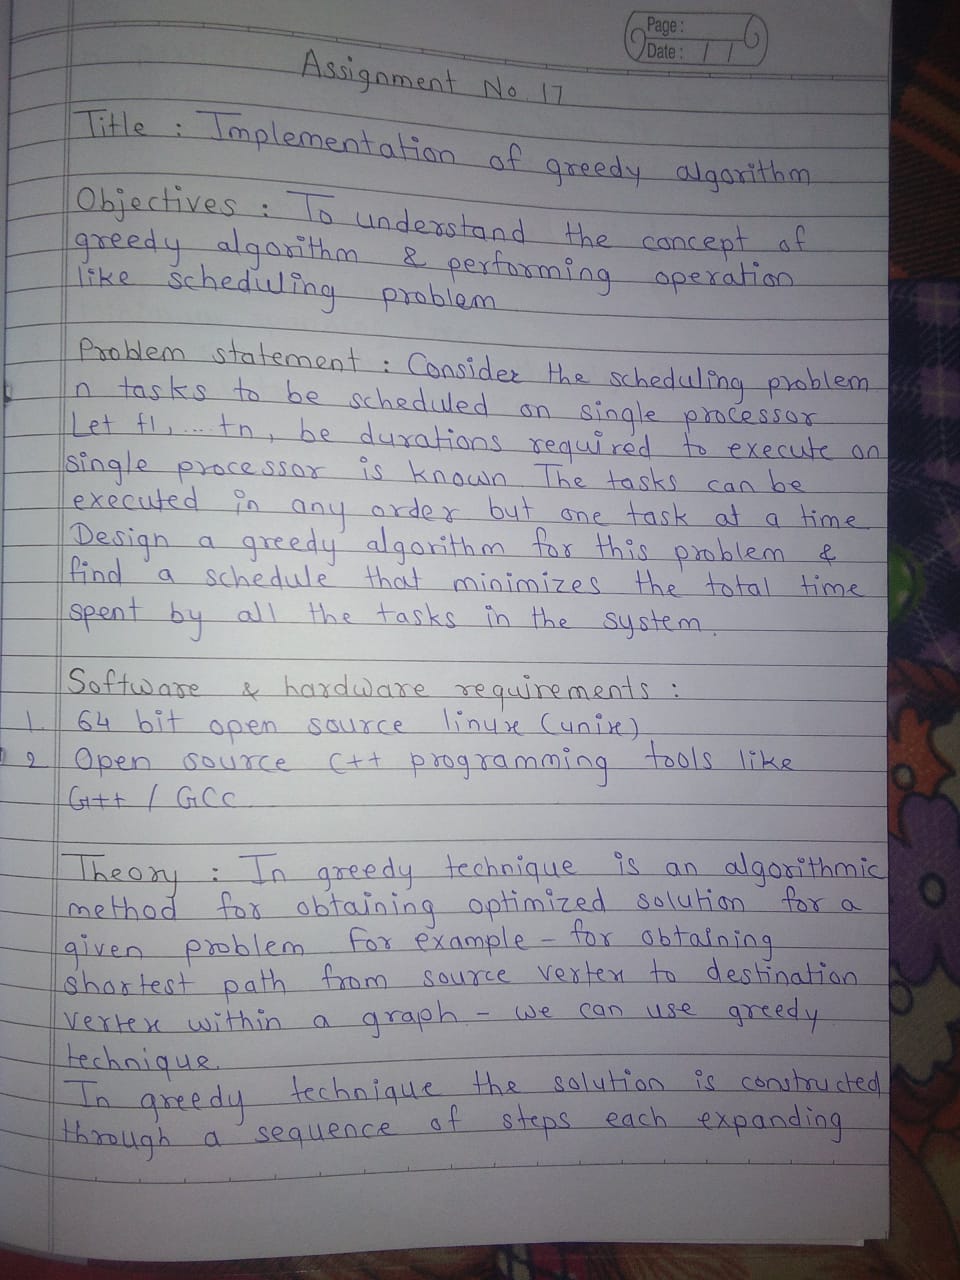 Page:
Date: / /
Assignment No. 17
Title : Implementation of greedy algorithm
Objectives : To understand the concept of
greedy algorithm & performing operation
like scheduling problem
Problem statement : Consider the scheduling problem
n tasks to be scheduled on single processor
Let t1, ... tn, be durations required to execute on
single processor is known. The tasks can be
executed in any order but one task at a time
Design a greedy algorithm for this problem &
find a schedule that minimizes the total time
spent by all the tasks in the system.
Software & hardware requirements :
1. 64 bit open source linux (unix)
2 Open source C++ programming tools like
G++ / GCC
Theory : In greedy technique is an algorithmic
method for obtaining optimized solution for a
given problem For example - for obtaining
shortest path from source vertex to destination
vertex within a graph - we can use greedy
technique.
In greedy technique the solution is constructed
through a sequence of steps each expanding